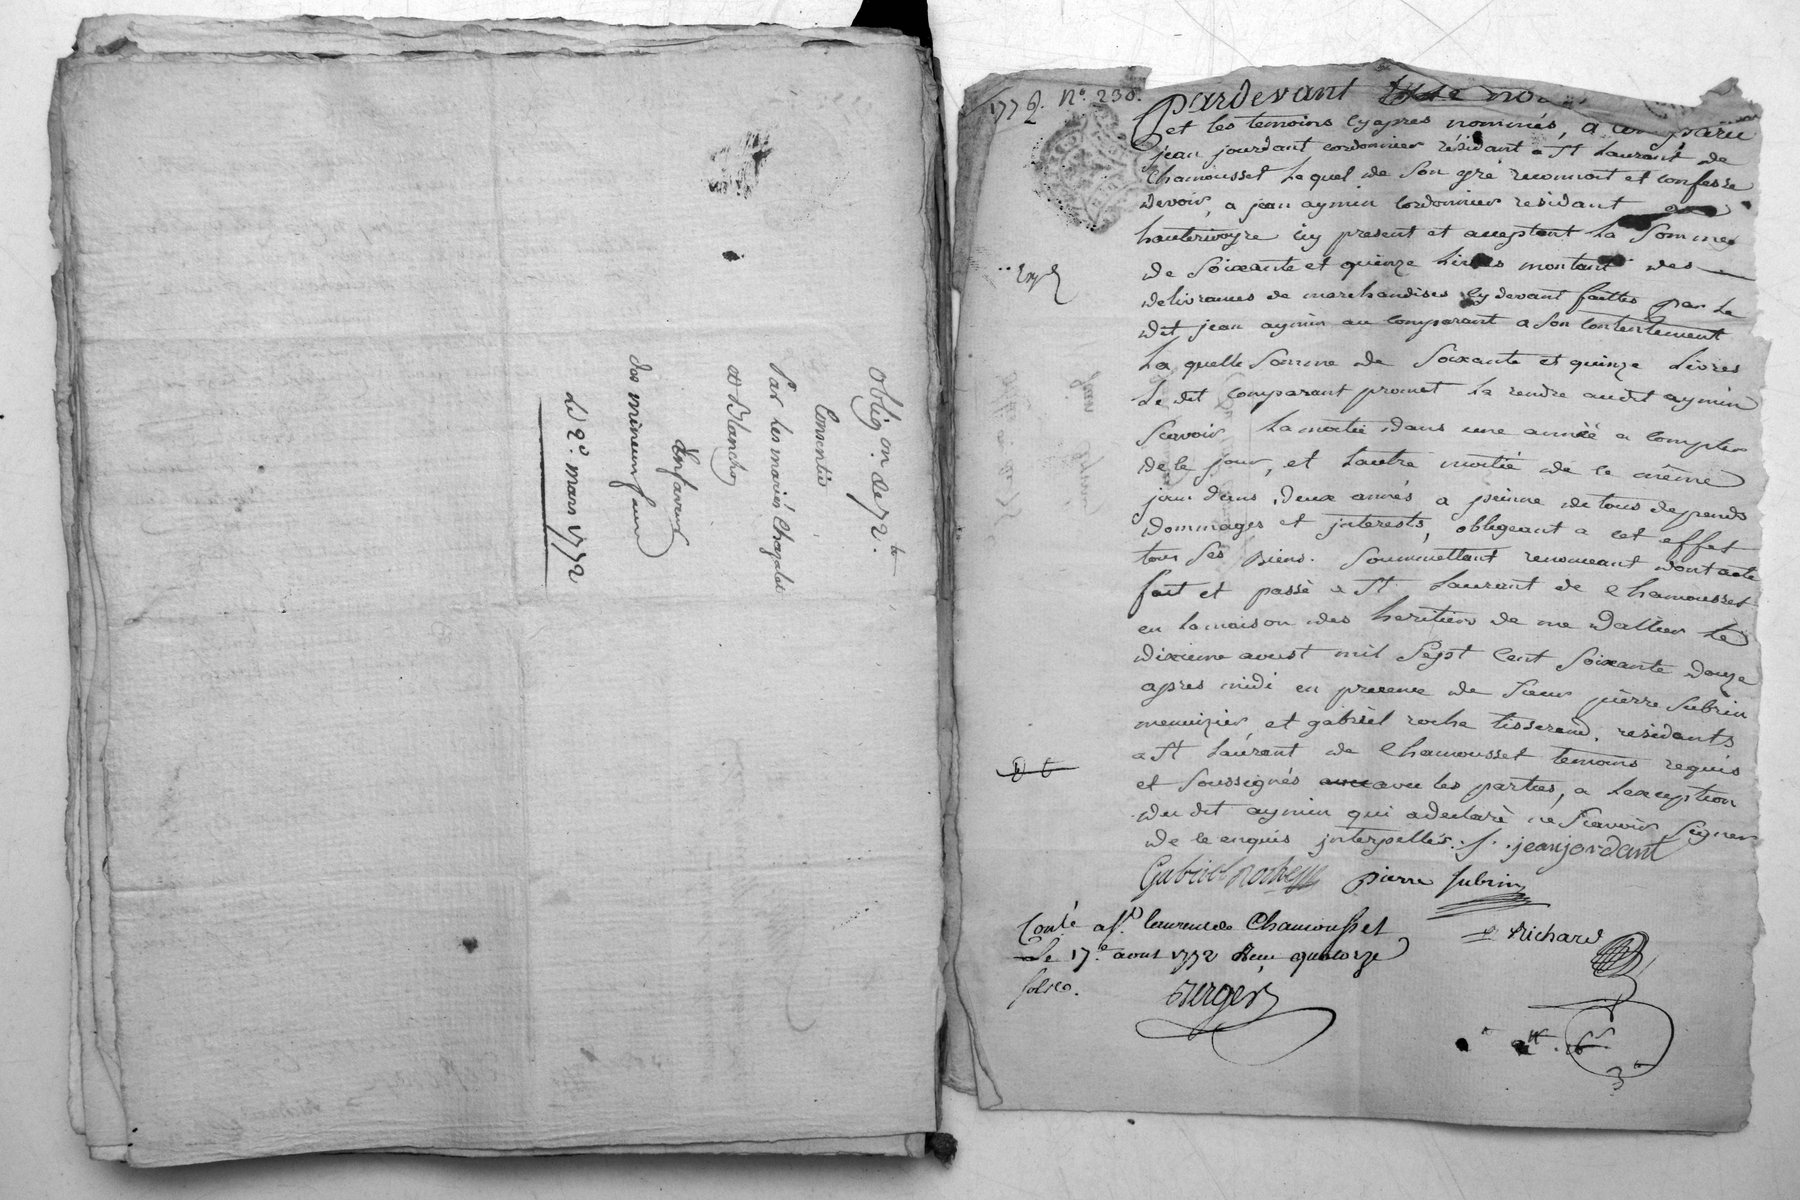 oblig.on de 72 lt
Consentie
Par les mariés Chazalet
et Blanche
En faveur
des mineurs
Le 2e. mars 1772
1772. N° 230.
Pardevant le no
et les temoins cy apres nommés, a comparu
jean jourdant cordonnier résidant a St Laurant de
Chamousset Lequel de son gré reconnoit et confesse
devoir, a jean aymin cordonnier residant a
hauterivoire icy present et acceptant La somme
de soixante et quinze Livres montant des
delivrances de marchandises cy devant faittes par Le
dit jean aymin au comparant a son contentement
La quelle somme de soixante et quinze Livres
Le dit comparant promet La rendre audit aymin
scavoir La moitié dans une année a compter
de ce jour, et Lautre moitié de ce même
jour dans deux annés a peinne de tous depends
dommages et jnterests, obligeant a cet effet
tous ses biens. soummettant renonceant dont acte
fait et passé a St Laurent de Chamousset
en La maison des heritiers de me dallier Le
dixieme aoust mil sept cent soixante douze
apres midi en presence de sieur pierre subrin
menuizier et gabriel roche tisserand, residants
a St Laurant de Chamousset temoins requis
et soussignés avec avec les parties, a Lexception
du dit aymin qui a declaré ne scavoir signer
de ce enquis jnterpellés. jean jordant
Gabriel Roche pierre subrin
Conlé a St. laurent de Chamousset
Le 17e. aoust 1772 Reçu quatorze
sols
Richard
Berger